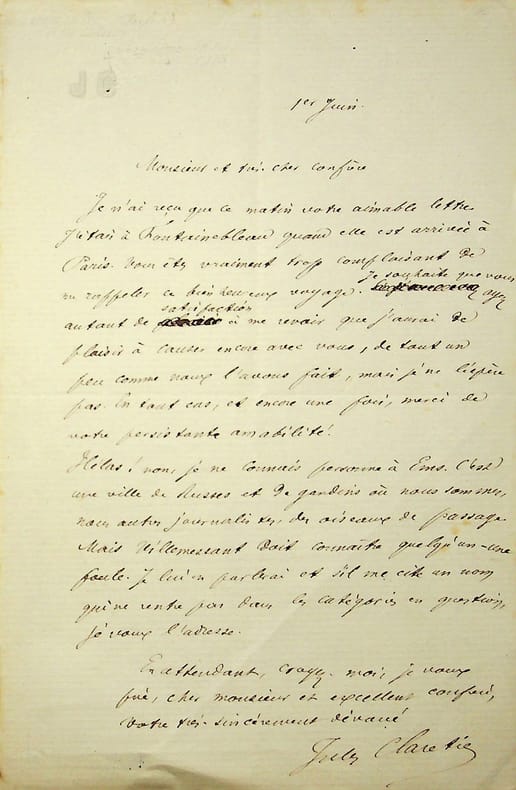 1er Juin.
Monsieur et très cher confrère
Je n'ai reçu que ce matin votre aimable lettre.
J'étais à Fontainebleau quand elle est arrivée à
Paris. Vous êtes vraiment trop complaisant de
me rappeler ce bienheureux voyage. Je souhaite que vous ayez
autant de satisfaction à me revoir que j'aurai de
plaisir à causer encore avec vous, de tout un
peu comme nous l'avons fait, mais je ne l'espère
pas. En tout cas, et encore une fois, merci de
votre persistante amabilité.
Hélas! non, je ne connais personne à Ems. C'est
une ville de Russes et de gandins où nous sommes,
nous autres journalistes, des oiseaux de passage.
Mais Villemessant doit connaître quelqu'un - une
foule. Je lui en parlerai et s'il me cite un nom
qui ne rentre pas dans les catégories en question,
je vous l'adresse.
En attendant, croyez-moi, je vous
prie, cher monsieur et excellent confrère,
votre très sincèrement dévoué
Jules Claretie